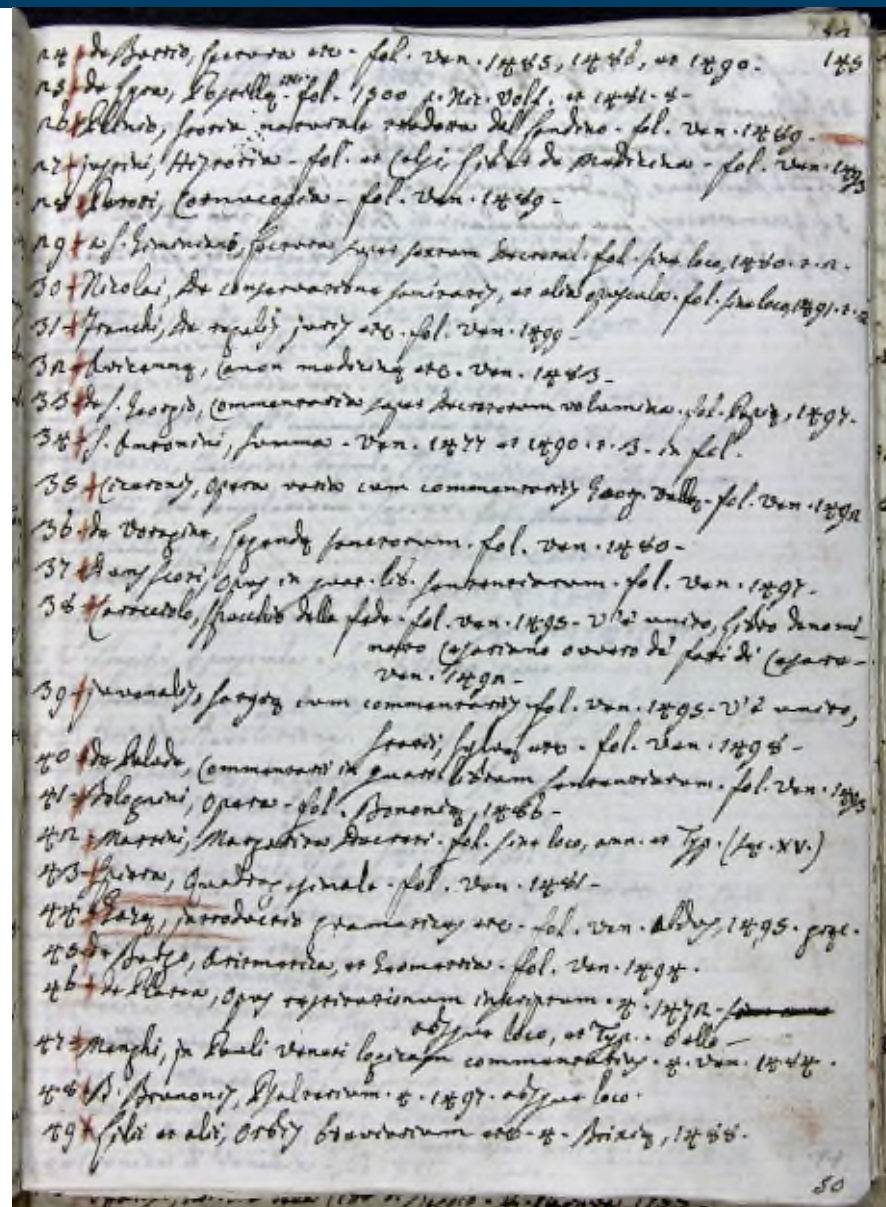 145
24 de Bartio, Lectura etc - fol. Ven. 1485, 1486, et 1490.
25 de Lyra, Postillę fol. 1500 Nic. Wolf. et 1481. 4 -
26 Plinio, storia naturale tradotta dal Landino - fol. Ven. 1489 -
27 justini, Historia - fol. et Celsi, Libri de Medicina - fol. Ven. 1493
28 Peroti, Cornucopia - fol. Ven. 1489 -
29 a S. Geminiano, Lectura super sextum Decretal. fol. sine loco, 1480. t. 2.
30 Nicolai, De conservatione sanitatis, et alia opuscula. fol. sine loco, 1491. t. 2
31 Franchi, De regulis juris etc. fol. Ven. 1499 -
32 Avicennę, Canon medicinę etc. Ven. 1483 -
33 de S. Georgio, Commentaria super Decretorum volumina. fol. Papię, 1497.
34 S. Antonini, Summa - Ven. 1477 et 1490. t. 3. in fol.
35 Ciceronis, Opera varia cum commentariis Georg. Vallę - fol. Ven. 1492
36 de Voragine, Legendę sanctorum. fol. Ven. 1480 -
37 Opus in quat. lib. sententiarum. fol. Ven. 1497.
38 Caracciolo, Specchio della fede - fol. Ven. 1495 - V'è unito, Libro denomi_
nato Cesariano ovvero de' fati di Cesare -
Ven. 1492 -
39 juvenalis, Satyrę cum commentariis fol. Ven. 1495 - V'è unito,
Statii, Sylvę etc - fol. Ven. 1498 -
40 de Palude, Commentarii in quart. librum sententiarum. fol. Ven. 1493
41 Bolognini, Opera - fol. Bononię, 1486 -
42 Martini, Margarita Decreti. fol. sine loco, ann. et Typ. (sęc. XV.)
43 Spiera, Quadragesimale - fol. Ven. 1481 -
44 Gazę, introductio gramatices etc - fol. Ven. Aldus, 1495. gręc.
45 de Borgo, Aritmetica, et Geometria - fol. Ven. 1494.
46 de Platea, Opus restitutionum inscriptum. 4. 1472 - sine anno
absque loco, et Typ. - bello -
47 Menghi, in Pauli Veneti logicam commentarius. 4. Ven. 1484.
48 B. Brunonis, Psalterium. 4. 1497. absque loco.
49 Silii et alii, Orbis breviarium etc. 4. Brixię, 1488.
50